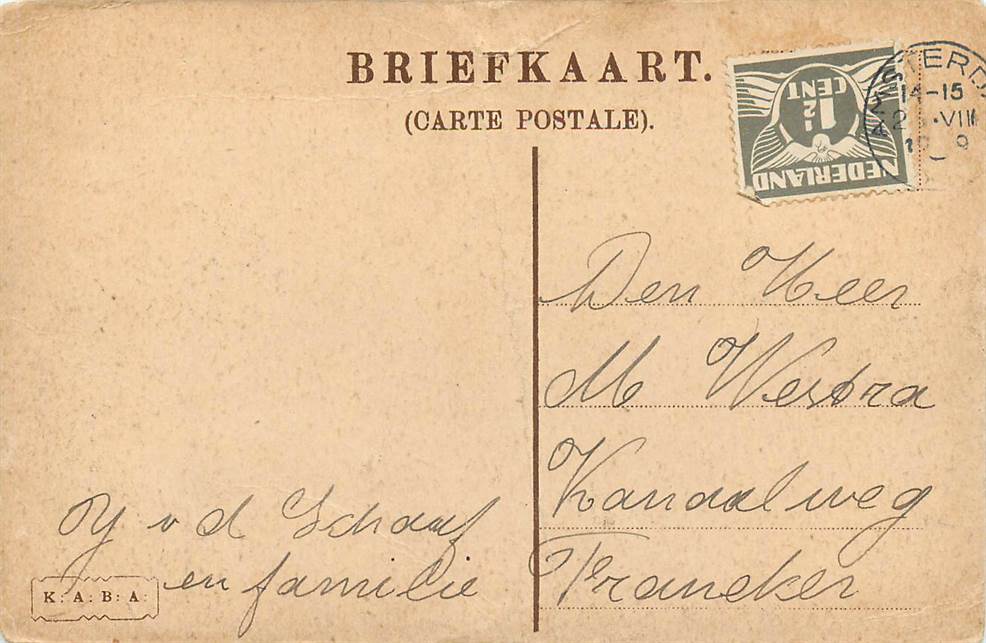 BRIEFKAART.
(CARTE POSTALE).
NEDERLAND
1½
CENT
14-15
VIII
Den Heer
M Westra
Kanaalweg
Franeker
v d Schaaf
en familie
K: A: B: A: